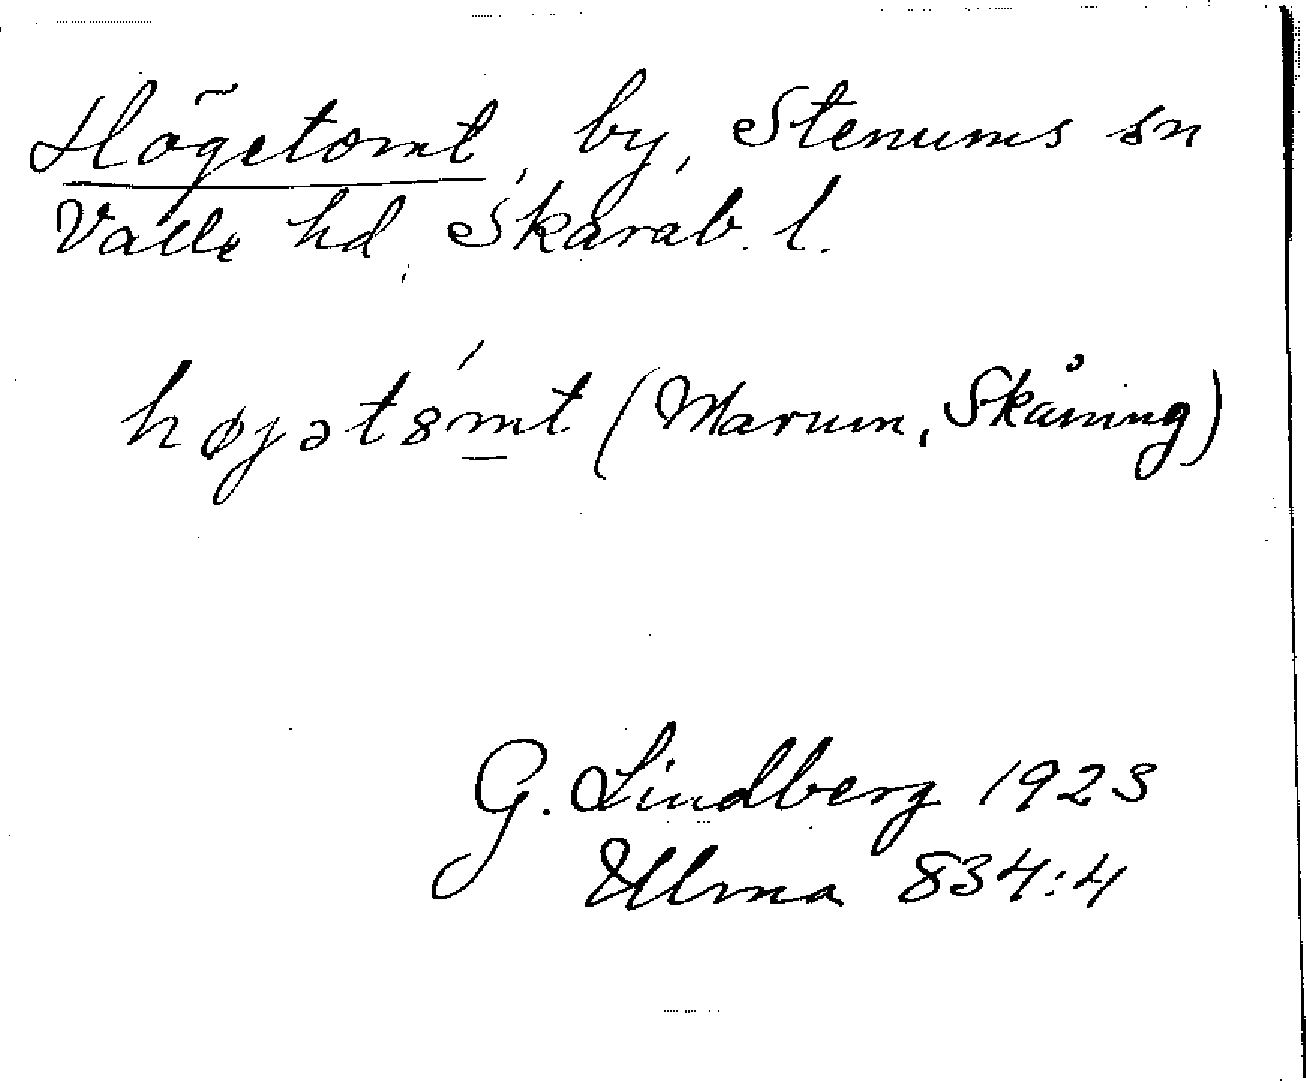 Högetomt, by, Stenums sn
Valle hd, Skarab. l.
højət8mt (Marum, Skåning)
G. Lindberg 1923
Ulma 834:4